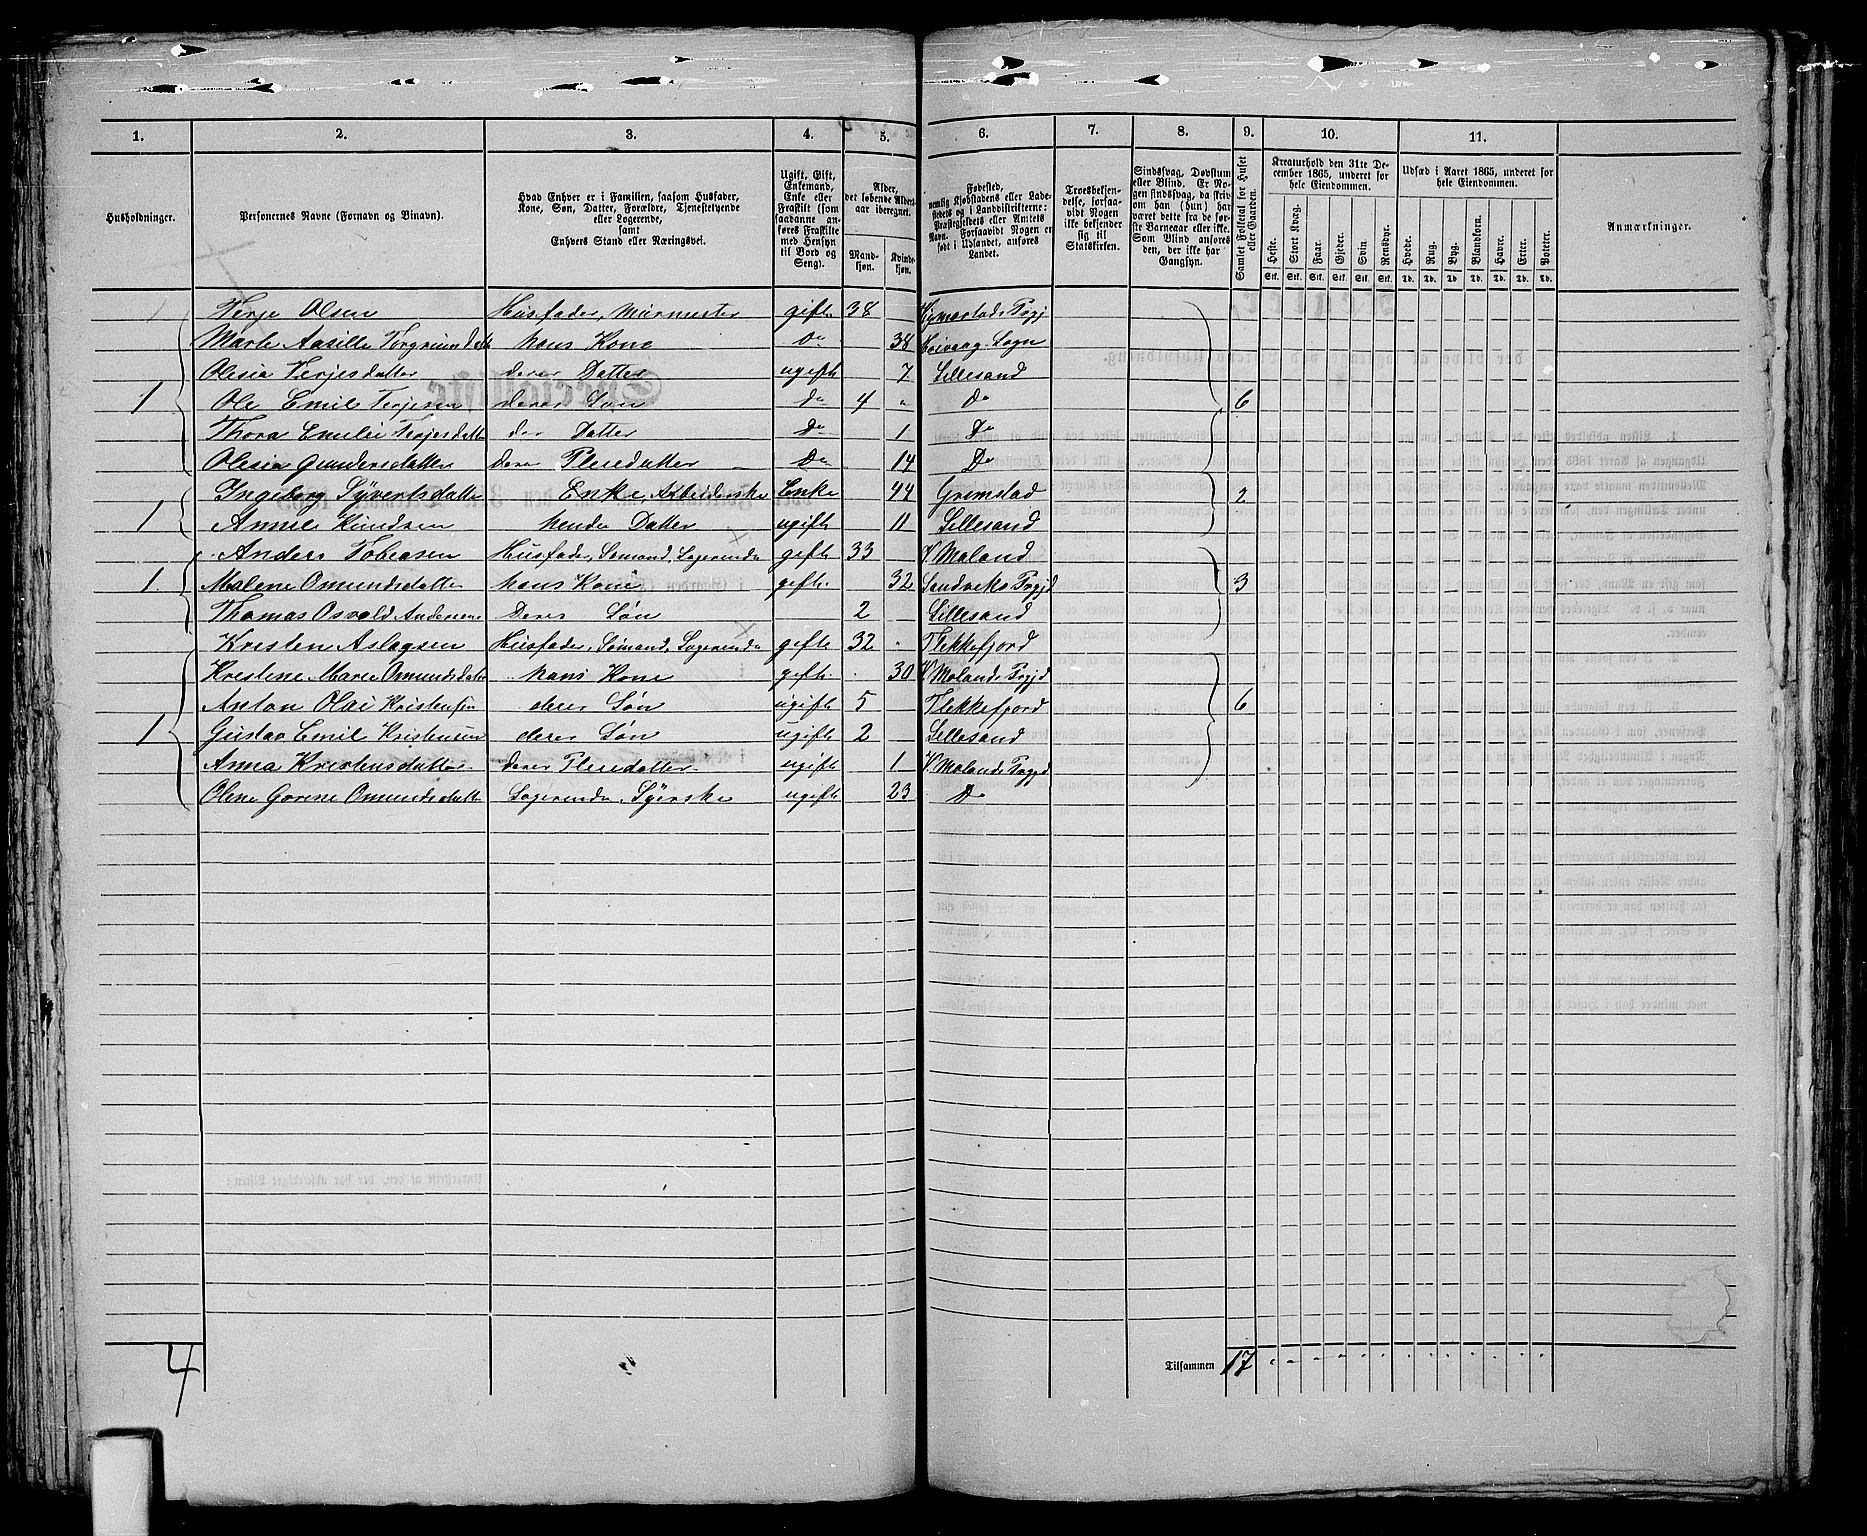 1. 2. 3. 4. 5. 6. 7. 8. 9. 10. 11.
Husholdninger.
Personernes Navne (Fornavn og Binavn).
Hvad Enhver er i Familien, saasom Husfader,
Kone, Søn, Datter, Forældre, Tjenestetyende
eller Logerende,
samt
Enhvers Stand eller Næringsvei.
Ugift, Gift,
Enkemand,
Enke eller
Fraskilt (som
saadanne anføres
Fraskilte
med Hensyn
til Bord og
Seng).
Alder,
det løbende Alders-
aar iberegnet.
Mand-
kjøn.
Kvinde-
kjøn.
Fødested,
nemlig Kjøbstadens eller Lade-
stedets og i Landdistrikterne:
Præstegjeldets eller Amtets
Navn. Forsaavidt Nogen er
født i Udlandet, anføres
Landet.
Troesbekjen-
delse, forsaa-
vidt Nogen
ikke bekjender
sig til
Statskirken.
Sindssvag, Døvstum
eller Blind. Er No-
gen sindssvag, da skriv
om han (hun) har
været dette fra de før-
ste Barneaar eller ikke.
Som Blind anføres
den, der ikke har
Gangsyn.
Samlet Folketal for Huset
eller Gaarden.
Kreaturhold den 31te De-
cember 1865, underet for
hele Eiendommen.
Heste. Stort Kvæg. Faar. Gjeder. Svin Rensdyr.
Stk. Stk. Stk. Stk. Stk. Stk.
Udsæd i Aaret 1865, underet for
hele Eiendommen.
Hvede. Rug. Byg. Blandkorn. Havre. Erter. Poteter.
Td. Td. Td. Td. Td. Td. Td.
Anmærkninger.
Terje Olsen Husfader, Muurmester gift 38
Marte Aasille Torgrimsdatt hans Kone Do 38 Høivaag Sogn
Olesia Terjesdatter deres Datter ugift 7 Lillesand
1 Ole Emil Terjesen deres Søn Do 4 Do 6
Thora Emilie Terjesdatte Datter Do 1 Do
Olesia Gundersdatter deres Pleiedatter Do 14 Do
Ingeborg Syvertsdatte Enke, Arbeiderske Enke 44 Grimstad 2
1 Annie Knudsen hendes Datter ugift 11 Lillesand
Anders Tobiasen Husfader, Sømand, Logerende gift 33 V. Moland
1. Malene Omundsdatte hans Kone gift 32 Landviks Prgjd 3
Thomas Osvald Andersen Deres Søn 2 Lillesand
Kristen Aslagsen Husfader, Sømand, Logerende gift 32 Flekkefjord
Kristene Marie Omundsdatter hans Kone gift 30 V. Molands Prgjd
Anton Olai Kristensen deres Søn ugift 5 Flekkefjord 6
1 Gustav Emil Kristensen deres Søn ugift 2 Lillesand
Anna Kristensdatter deres Pleiedatter ugift 1 V. Molands Prgjd
Olene Gorine Omundsdatt Logerende, Syerske ugift 23 Do
4 Tilsammen 17